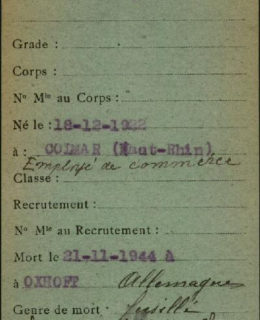 Grade :
Corps :
No Mle au Corps :
Né le : 18-12-1922
à : COLMAR (Haut-Rhin)
Employé de commerce
Classe :
Recrutement :
No Mle au Recrutement :
Mort le 21-11-1944 à
à OXHOFT Allemagne
Genre de mort : fusillé